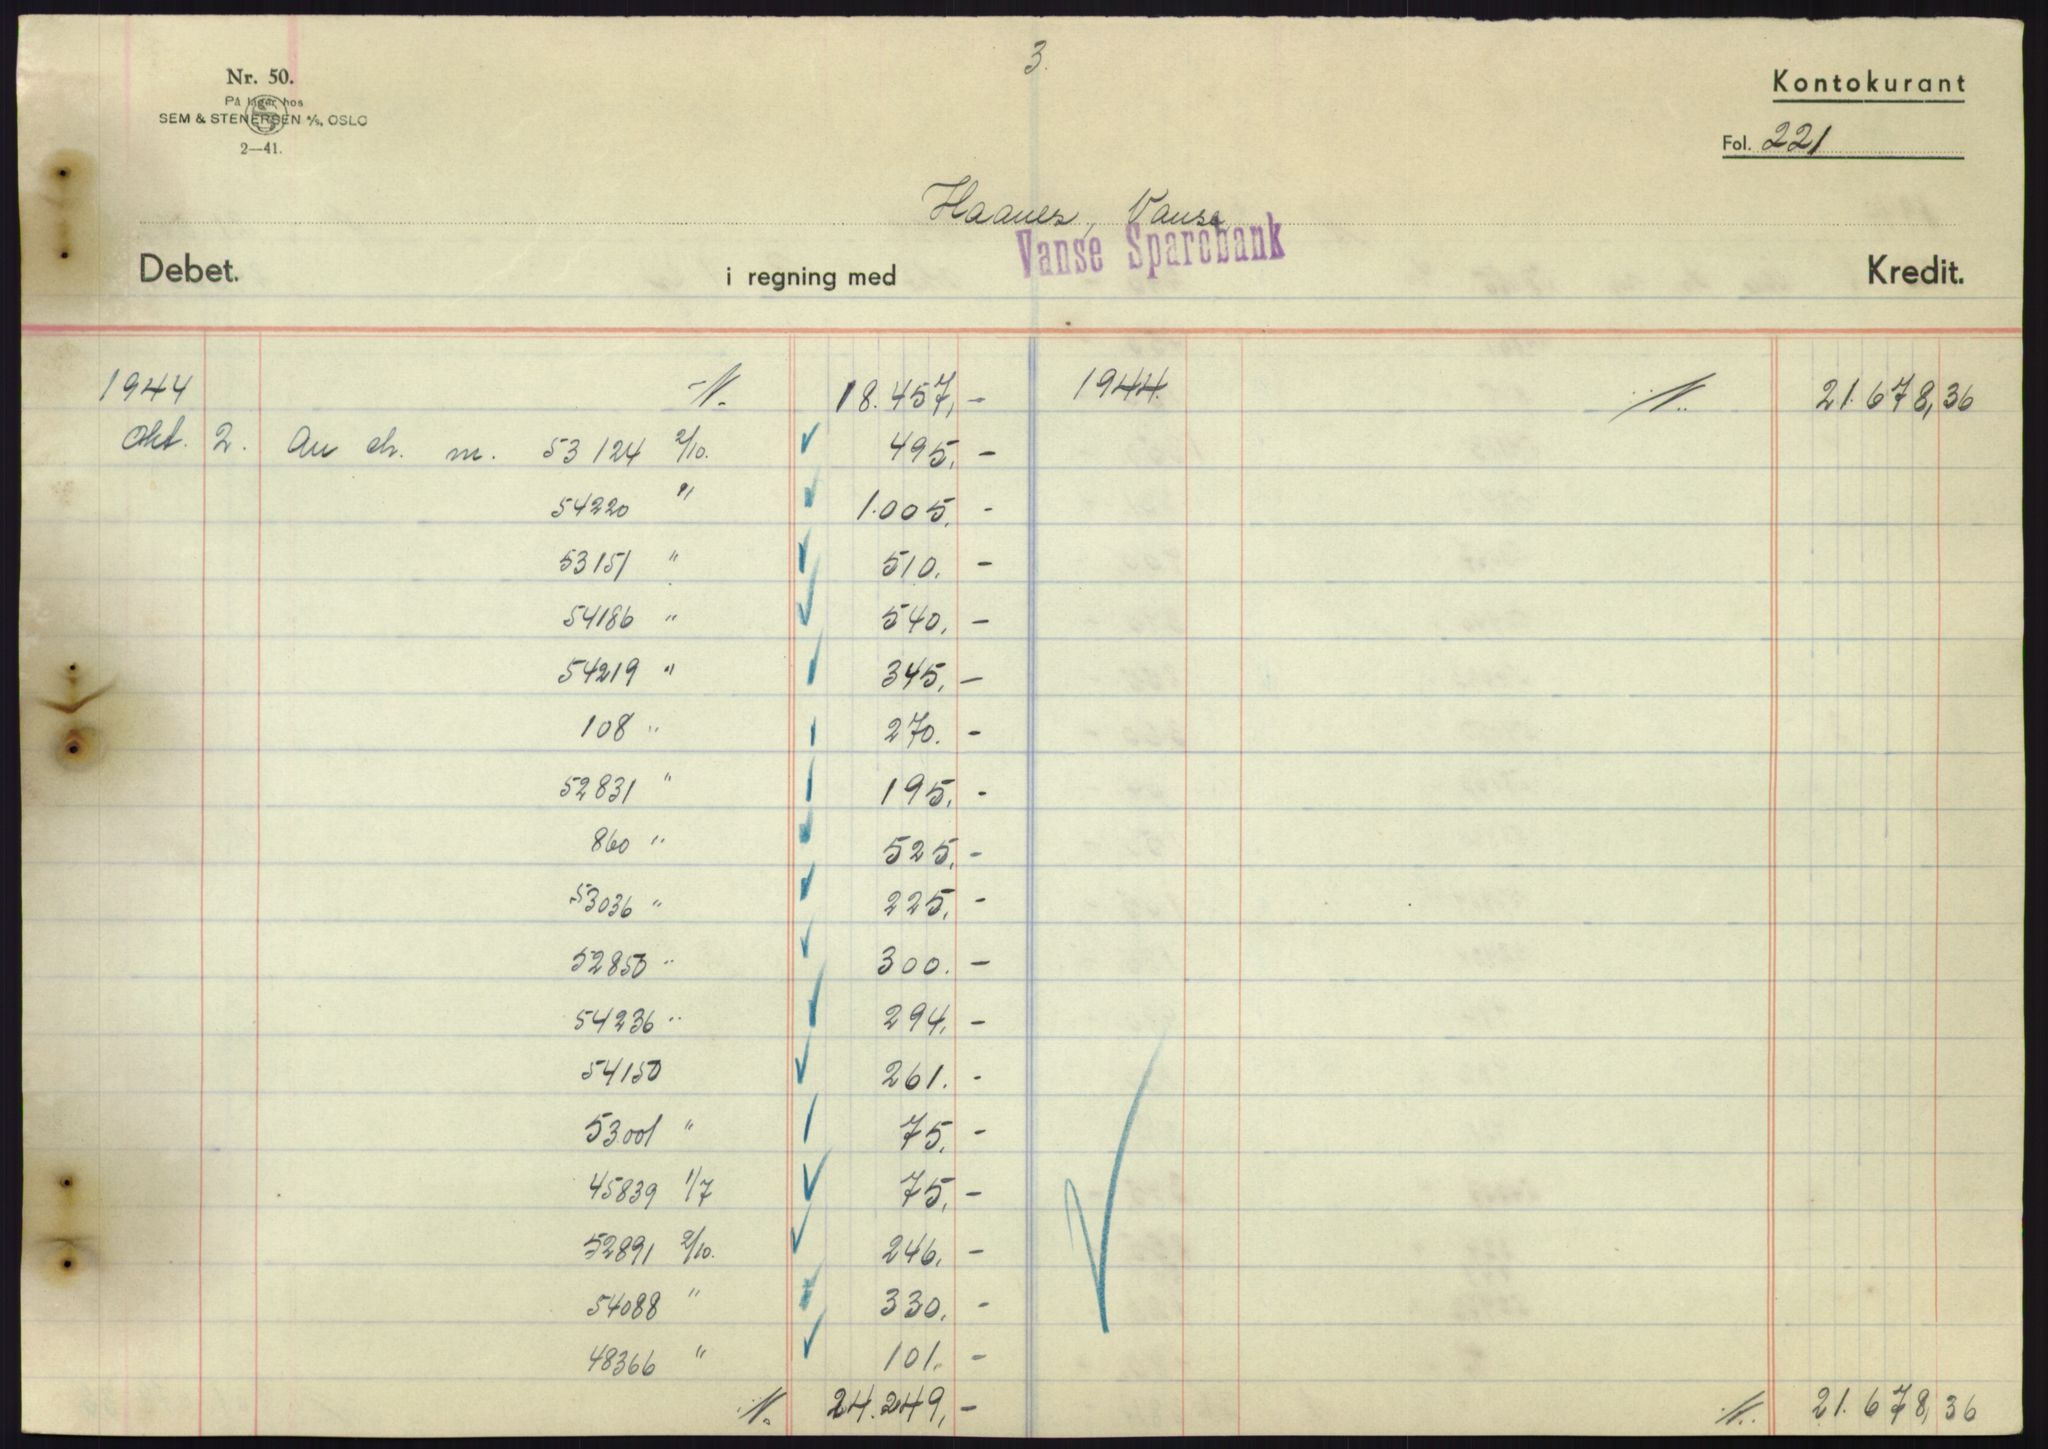 3.
Nr. 50.
På lager hos
SEM & STENERSEN A/S, OSLO
2—41.
Kontokurant
Fol. 221
Haanes, Vanse
Debet. i regning med Vanse Sparebank Kredit.
1944 18.457,- 1944. 21.678,36
Okt. 2. An ch. nr. 53124 2/10. 495,-
54220 " 1.005,-
53151 " 510,-
54186 " 540,-
54219 " 345,-
108 " 270,-
52831 " 195,-
860 " 525,-
53036 " 225,-
52850 " 300,-
54236 " 294,-
54150 261,-
53001 " 75,-
45839 1/7 75,-
52891 2/10. 246,-
54088 " 330,-
48366 " 101,-
24.249,- 21.678,36